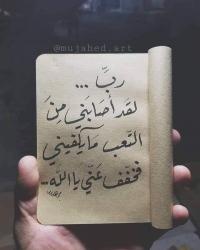 @mujahed.art
ربِّ ...
لقد أصَابَني مِنَ
التعب ما يكفيني
فخفّف عَنّي يا اللّه ..